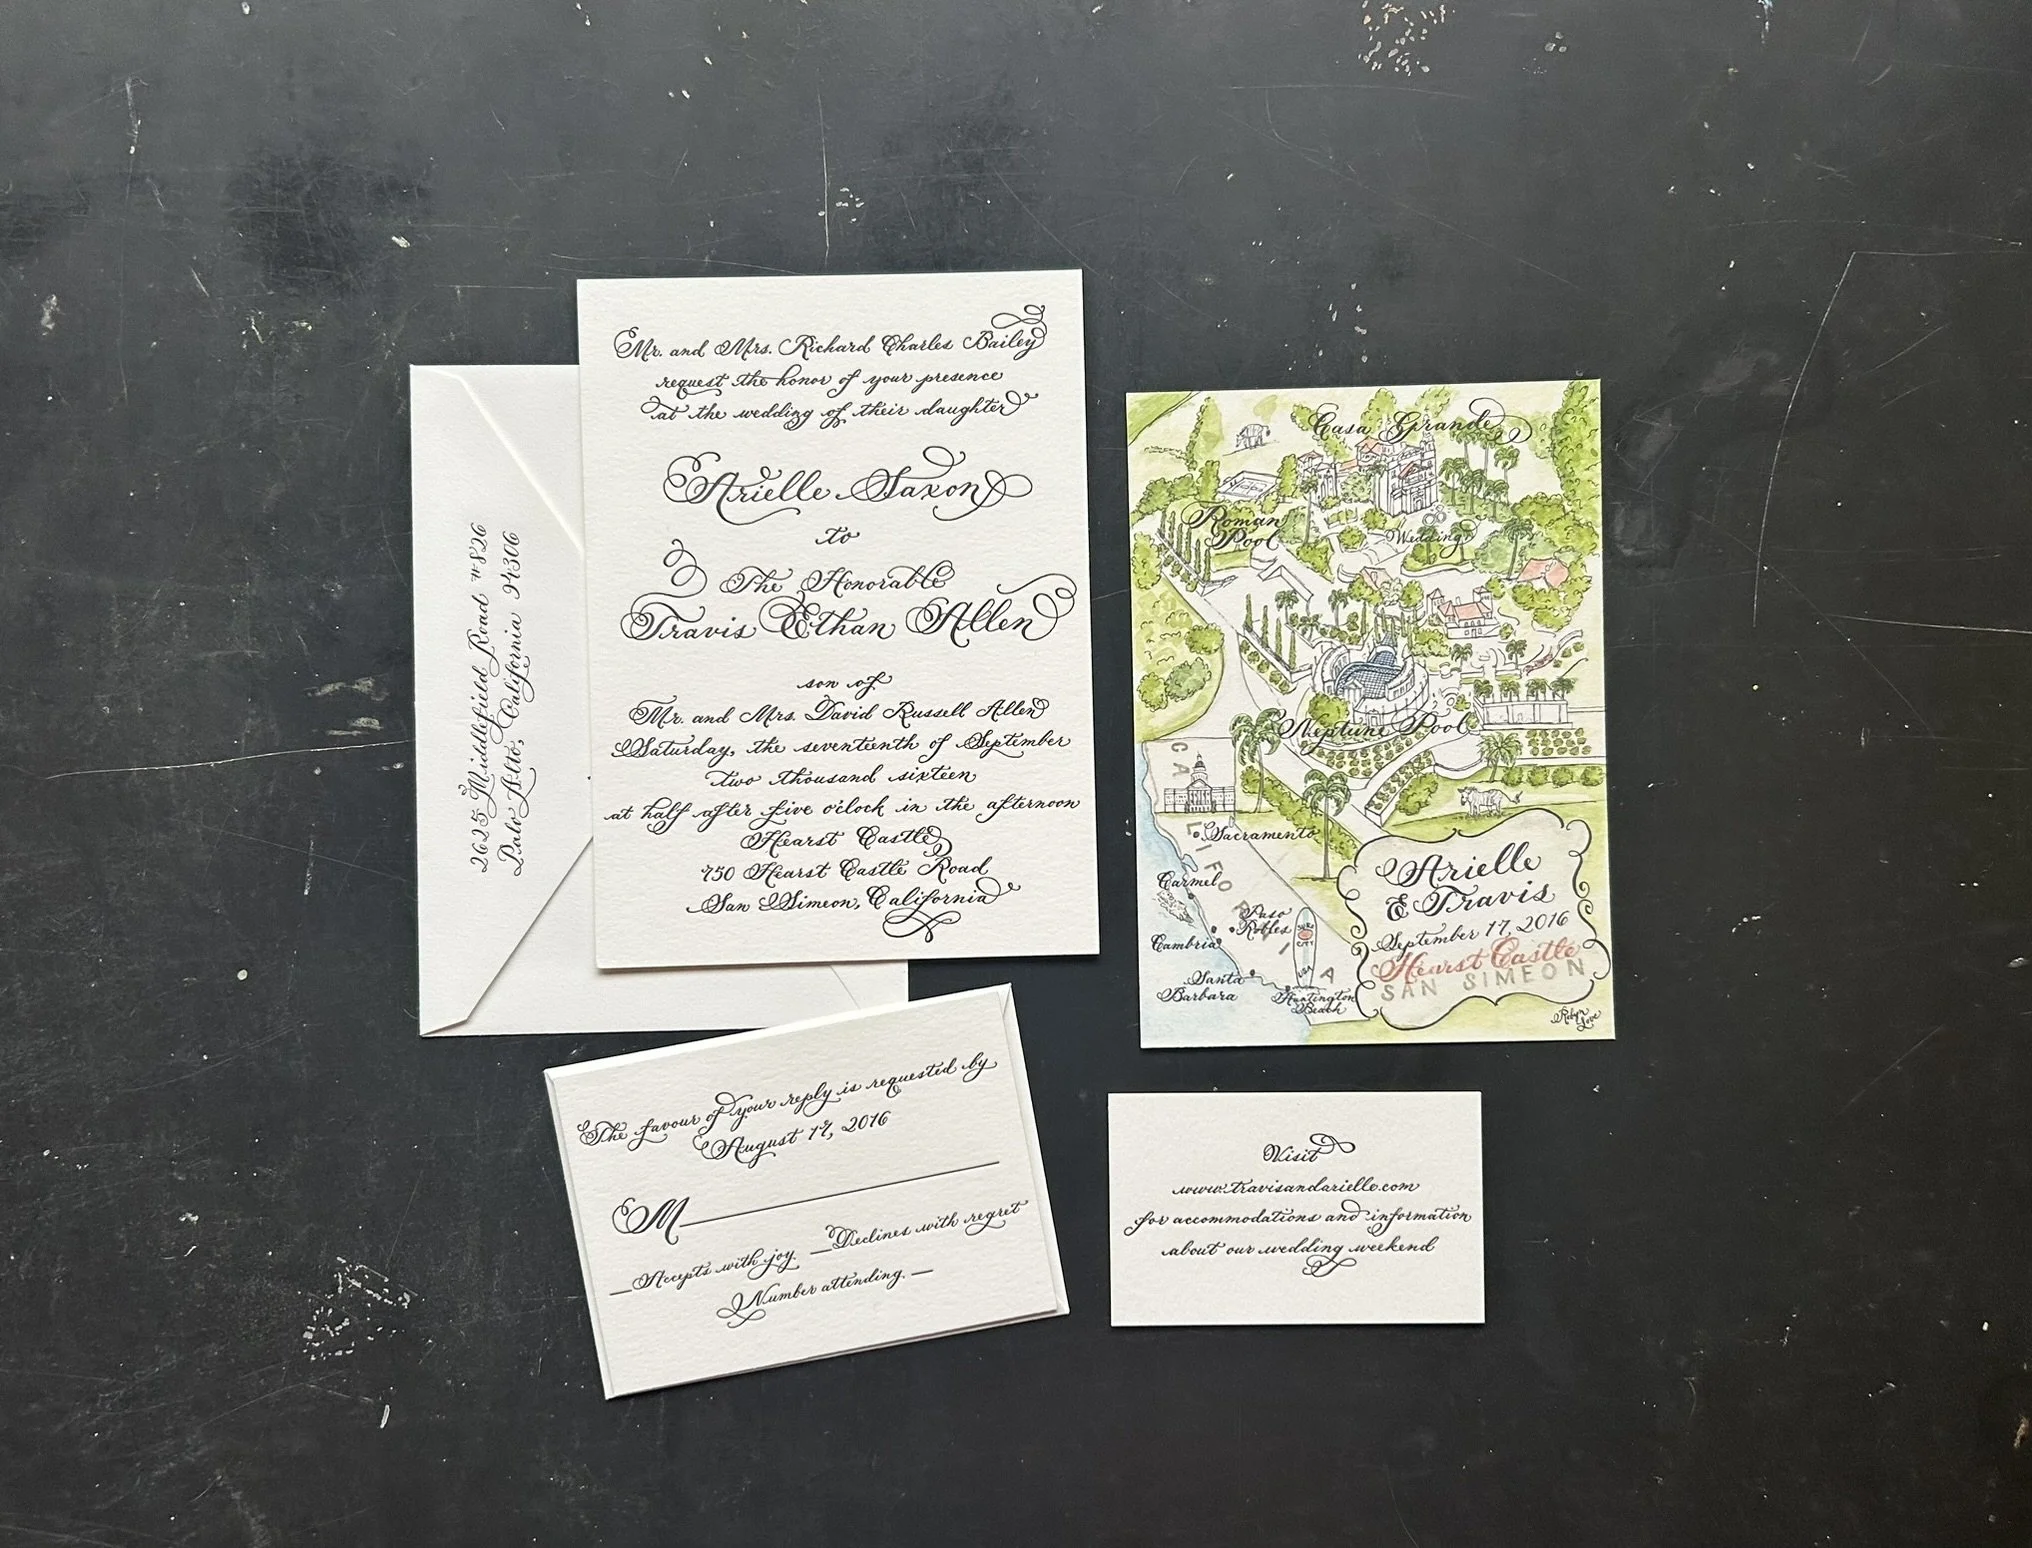 2625 Middlefield Road #826
Palo Alto, California 94306
Mr. and Mrs. Richard Charles Bailey
request the honor of your presence
at the wedding of their daughter
Arielle Saxon
to
The Honorable
Travis Ethan Allen
son of
Mr. and Mrs. David Russell Allen
Saturday, the seventeenth of September
two thousand sixteen
at half after five o'clock in the afternoon
Hearst Castle
750 Hearst Castle Road
San Simeon, California
Casa Grande
Roman
Pool
Wedding
Neptune Pool
CALIFORNIA
Sacramento
Carmel
Paso
Robles
Cambria
SURF
CITY
USA
Santa
Barbara
Huntington
Beach
Arielle
& Travis
September 17, 2016
Hearst Castle
SAN SIMEON
Robyn
Love
The favour of your reply is requested by
August 17, 2016
M
Accepts with joy. Declines with regret
Number attending.
Visit
www.travisandarielle.com
for accommodations and information
about our wedding weekend